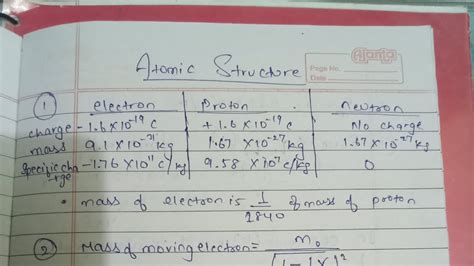 Atomic
Page No.
Date
Atomic Structure
① electron Proton neutron
charge -1.6×10⁻¹⁹ c +1.6×10⁻¹⁹ c No charge
mass 9.1×10⁻³¹ kg 1.67×10⁻²⁷ kg 1.67×10⁻²⁷ kg
Specific cha -1.76×10¹¹ c/kg 9.58×10⁷ c/kg 0
-rge
• mass of electron is 1/1840 of mass of proton
② Mass of moving electron = m₀